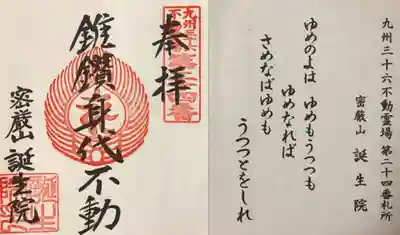 奉拝
錐鑽身代不動
密厳山 誕生院
九州三十六不動霊場 第二十四番札所
密厳山 誕生院
ゆめのよは ゆめもうつつも
ゆめなれば
さめなばゆめも
うつつとをしれ